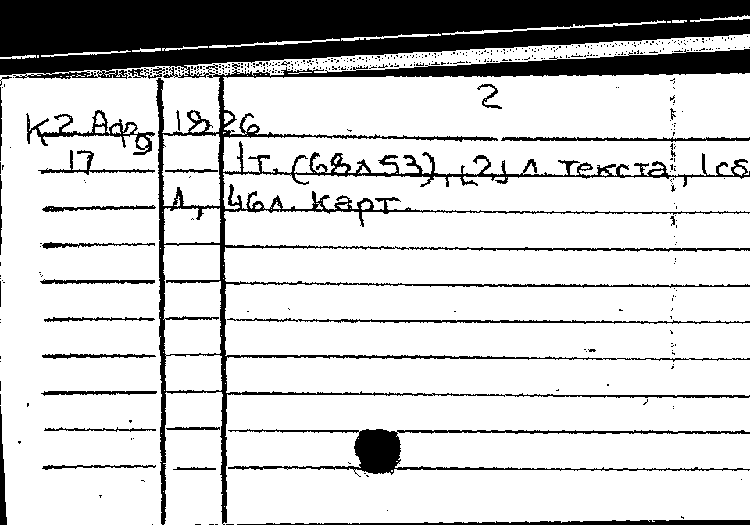 2
К2 Афр 1826
9
17 1т. (68л53), [2] л. текста, 1 сб.
л, 46л. карт.